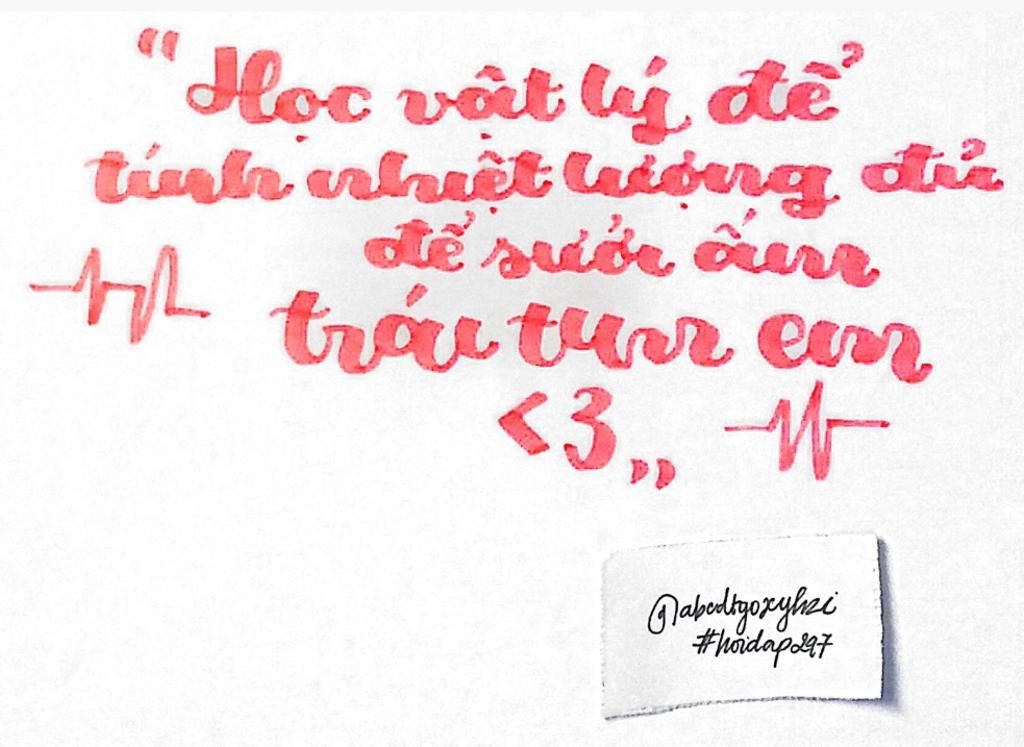 "Học vật lý để
tính nhiệt lượng đủ
để sưởi ấm
trái tim em
<3"
#hoidap247